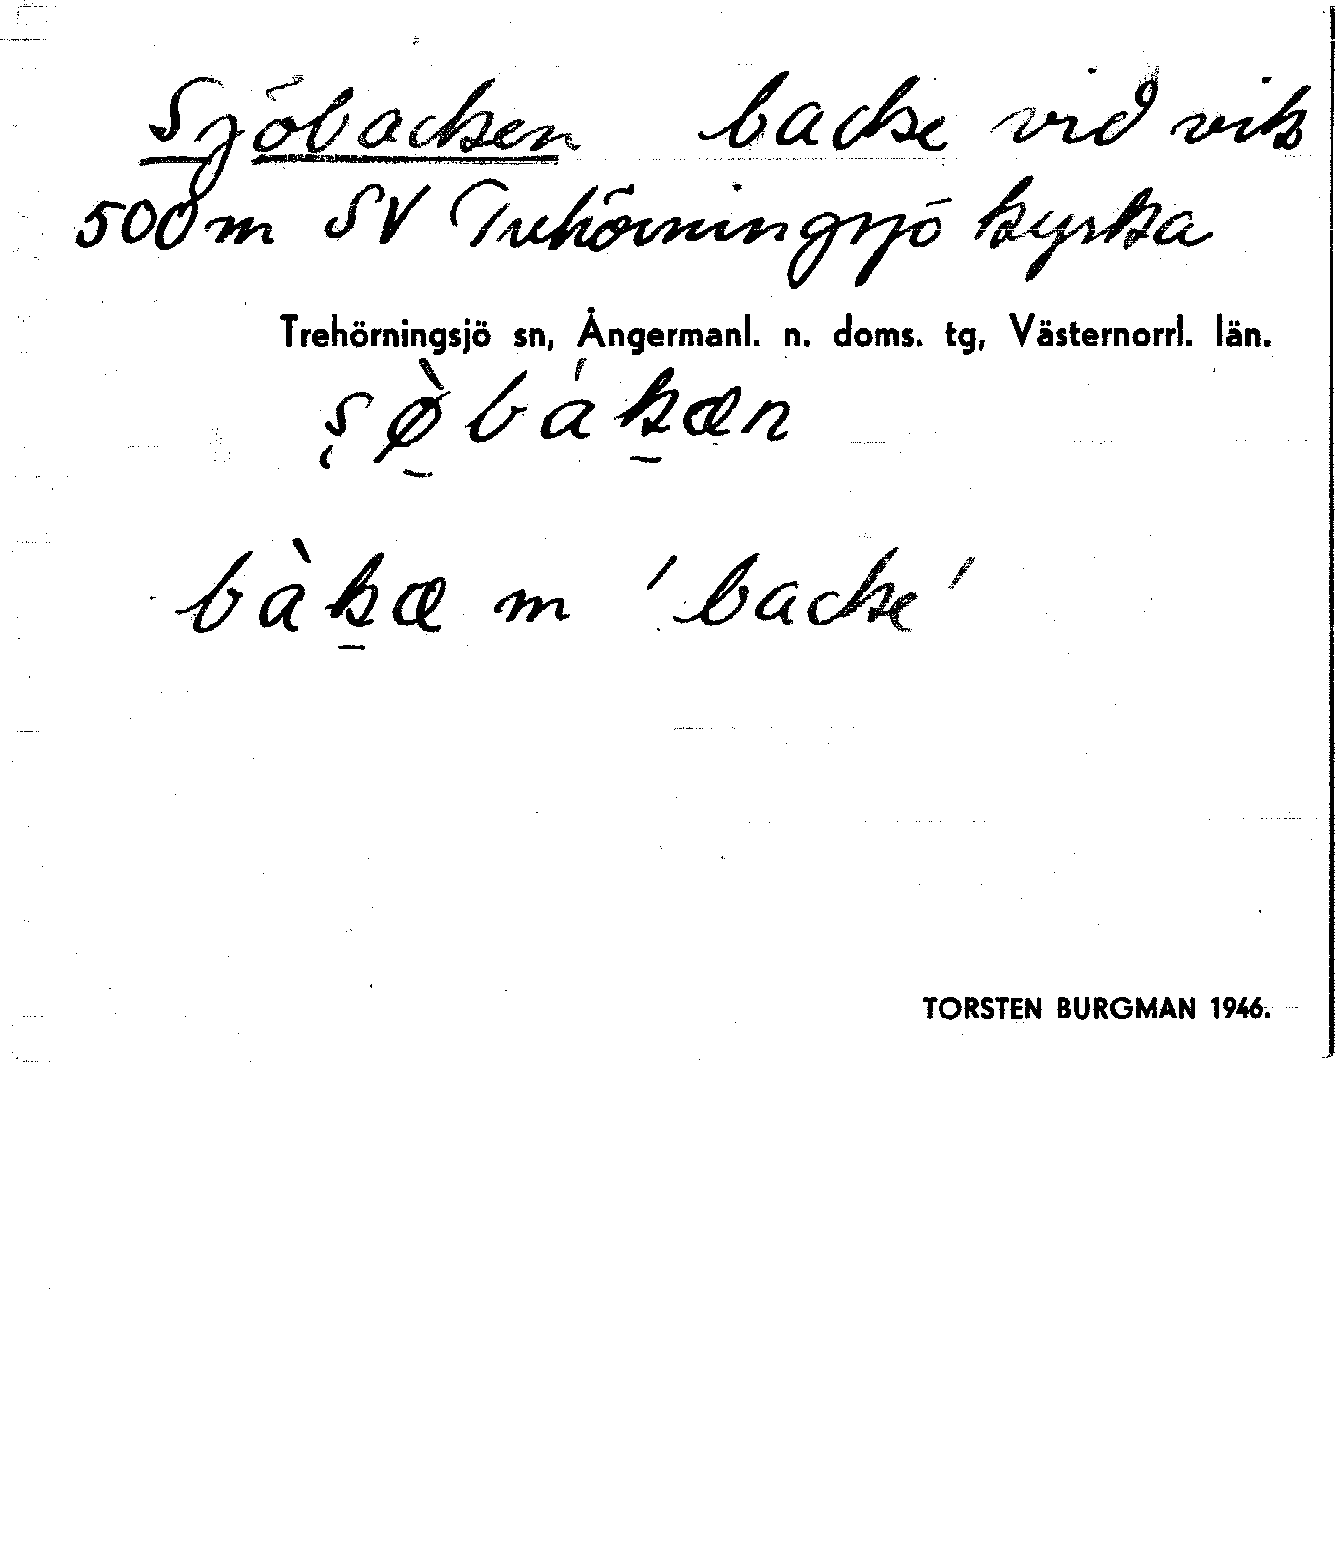 Sjöbacken backe vid vik
500 m SV Trehörningsjö kyrka
Trehörningsjö sn, Ångermanl. n. doms. tg, Västernorrl. län.
ş ø̠̀ b á k̠ æ n
b à k̠ æ m 'backe'
TORSTEN BURGMAN 1946.